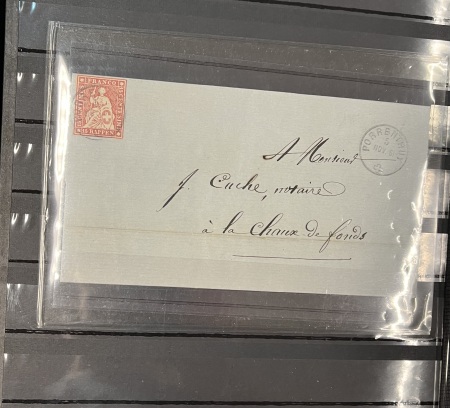 FRANCO
15 RAPPEN
PORRENTRUY
A Monsieur
J. Cuche, notaire
à la Chaux de fonds